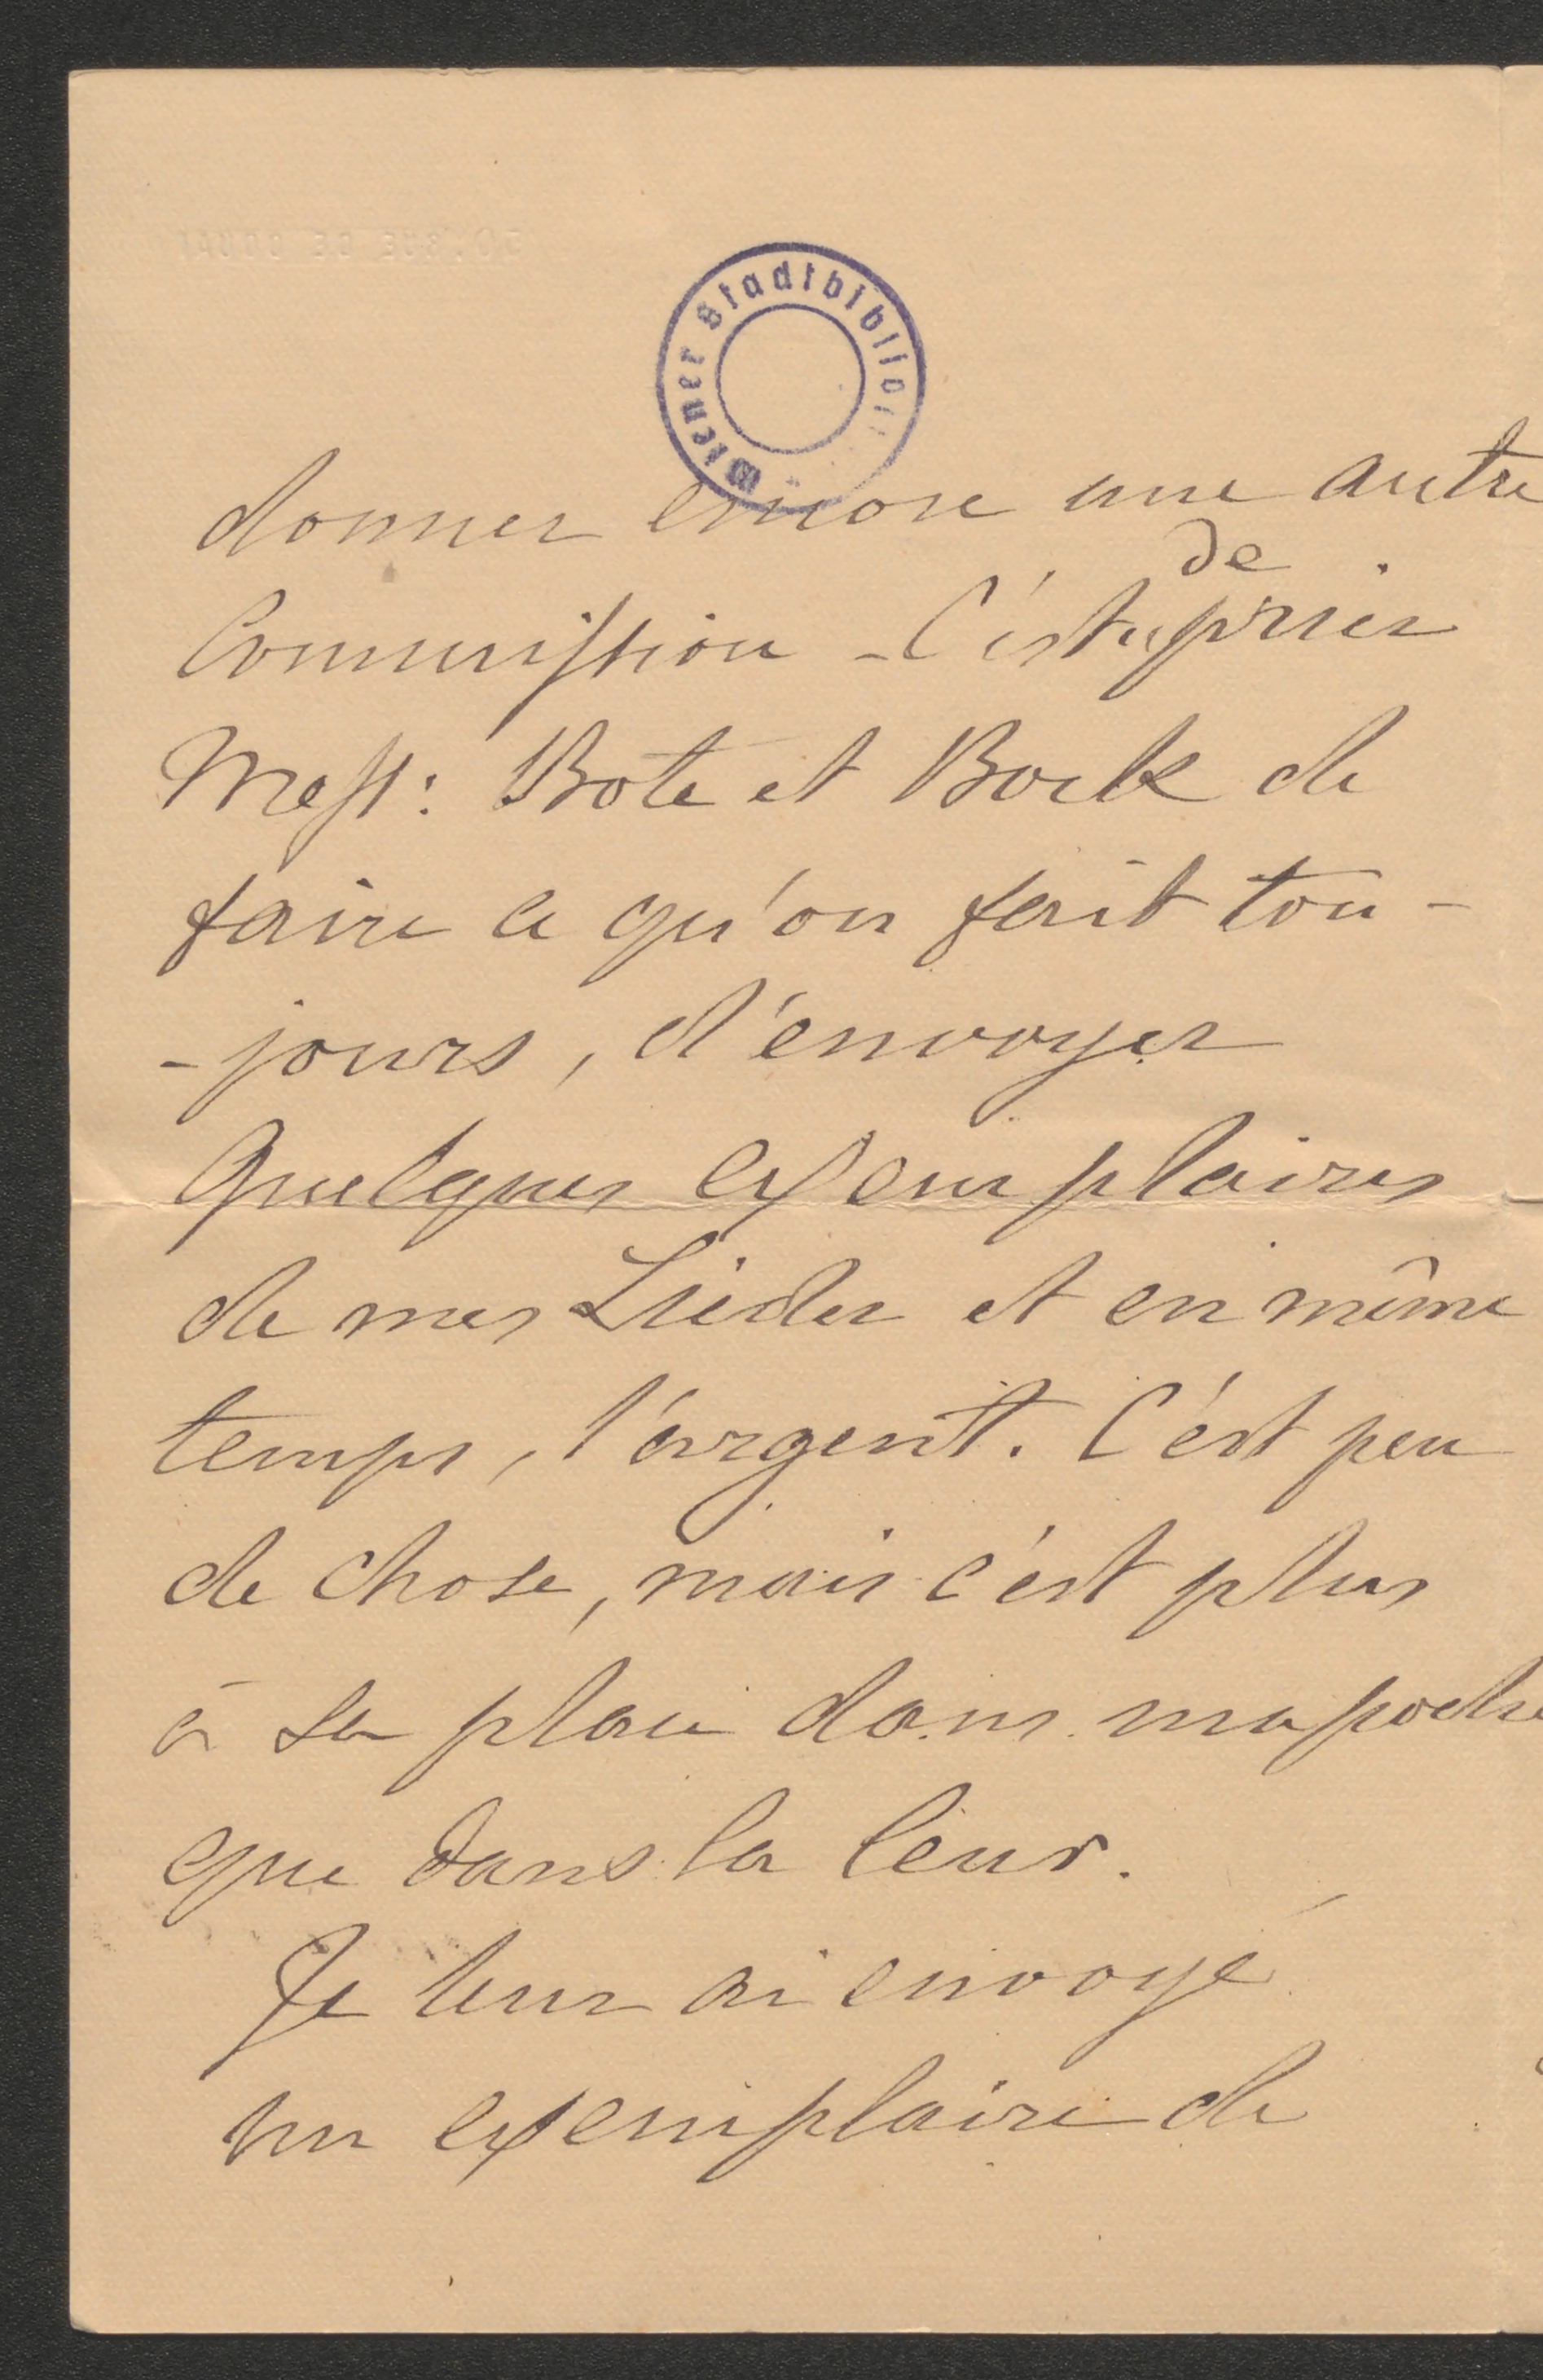 50, RUE DE DOUAI
Wiener Stadtbibliot
donner encore une autre
de
Commission - C'est prier
Mess: Bote et Bock de
faire ce qu'on fait tou-
-jours, d'envoyer
Quelques exemplaires
de mes Lieder et en même
temps, l'argent. C'est peu
de chose, mais c'est plus
à sa place dans ma poche
que dans la leur.
Je leur ai envoyé
un exemplaire de